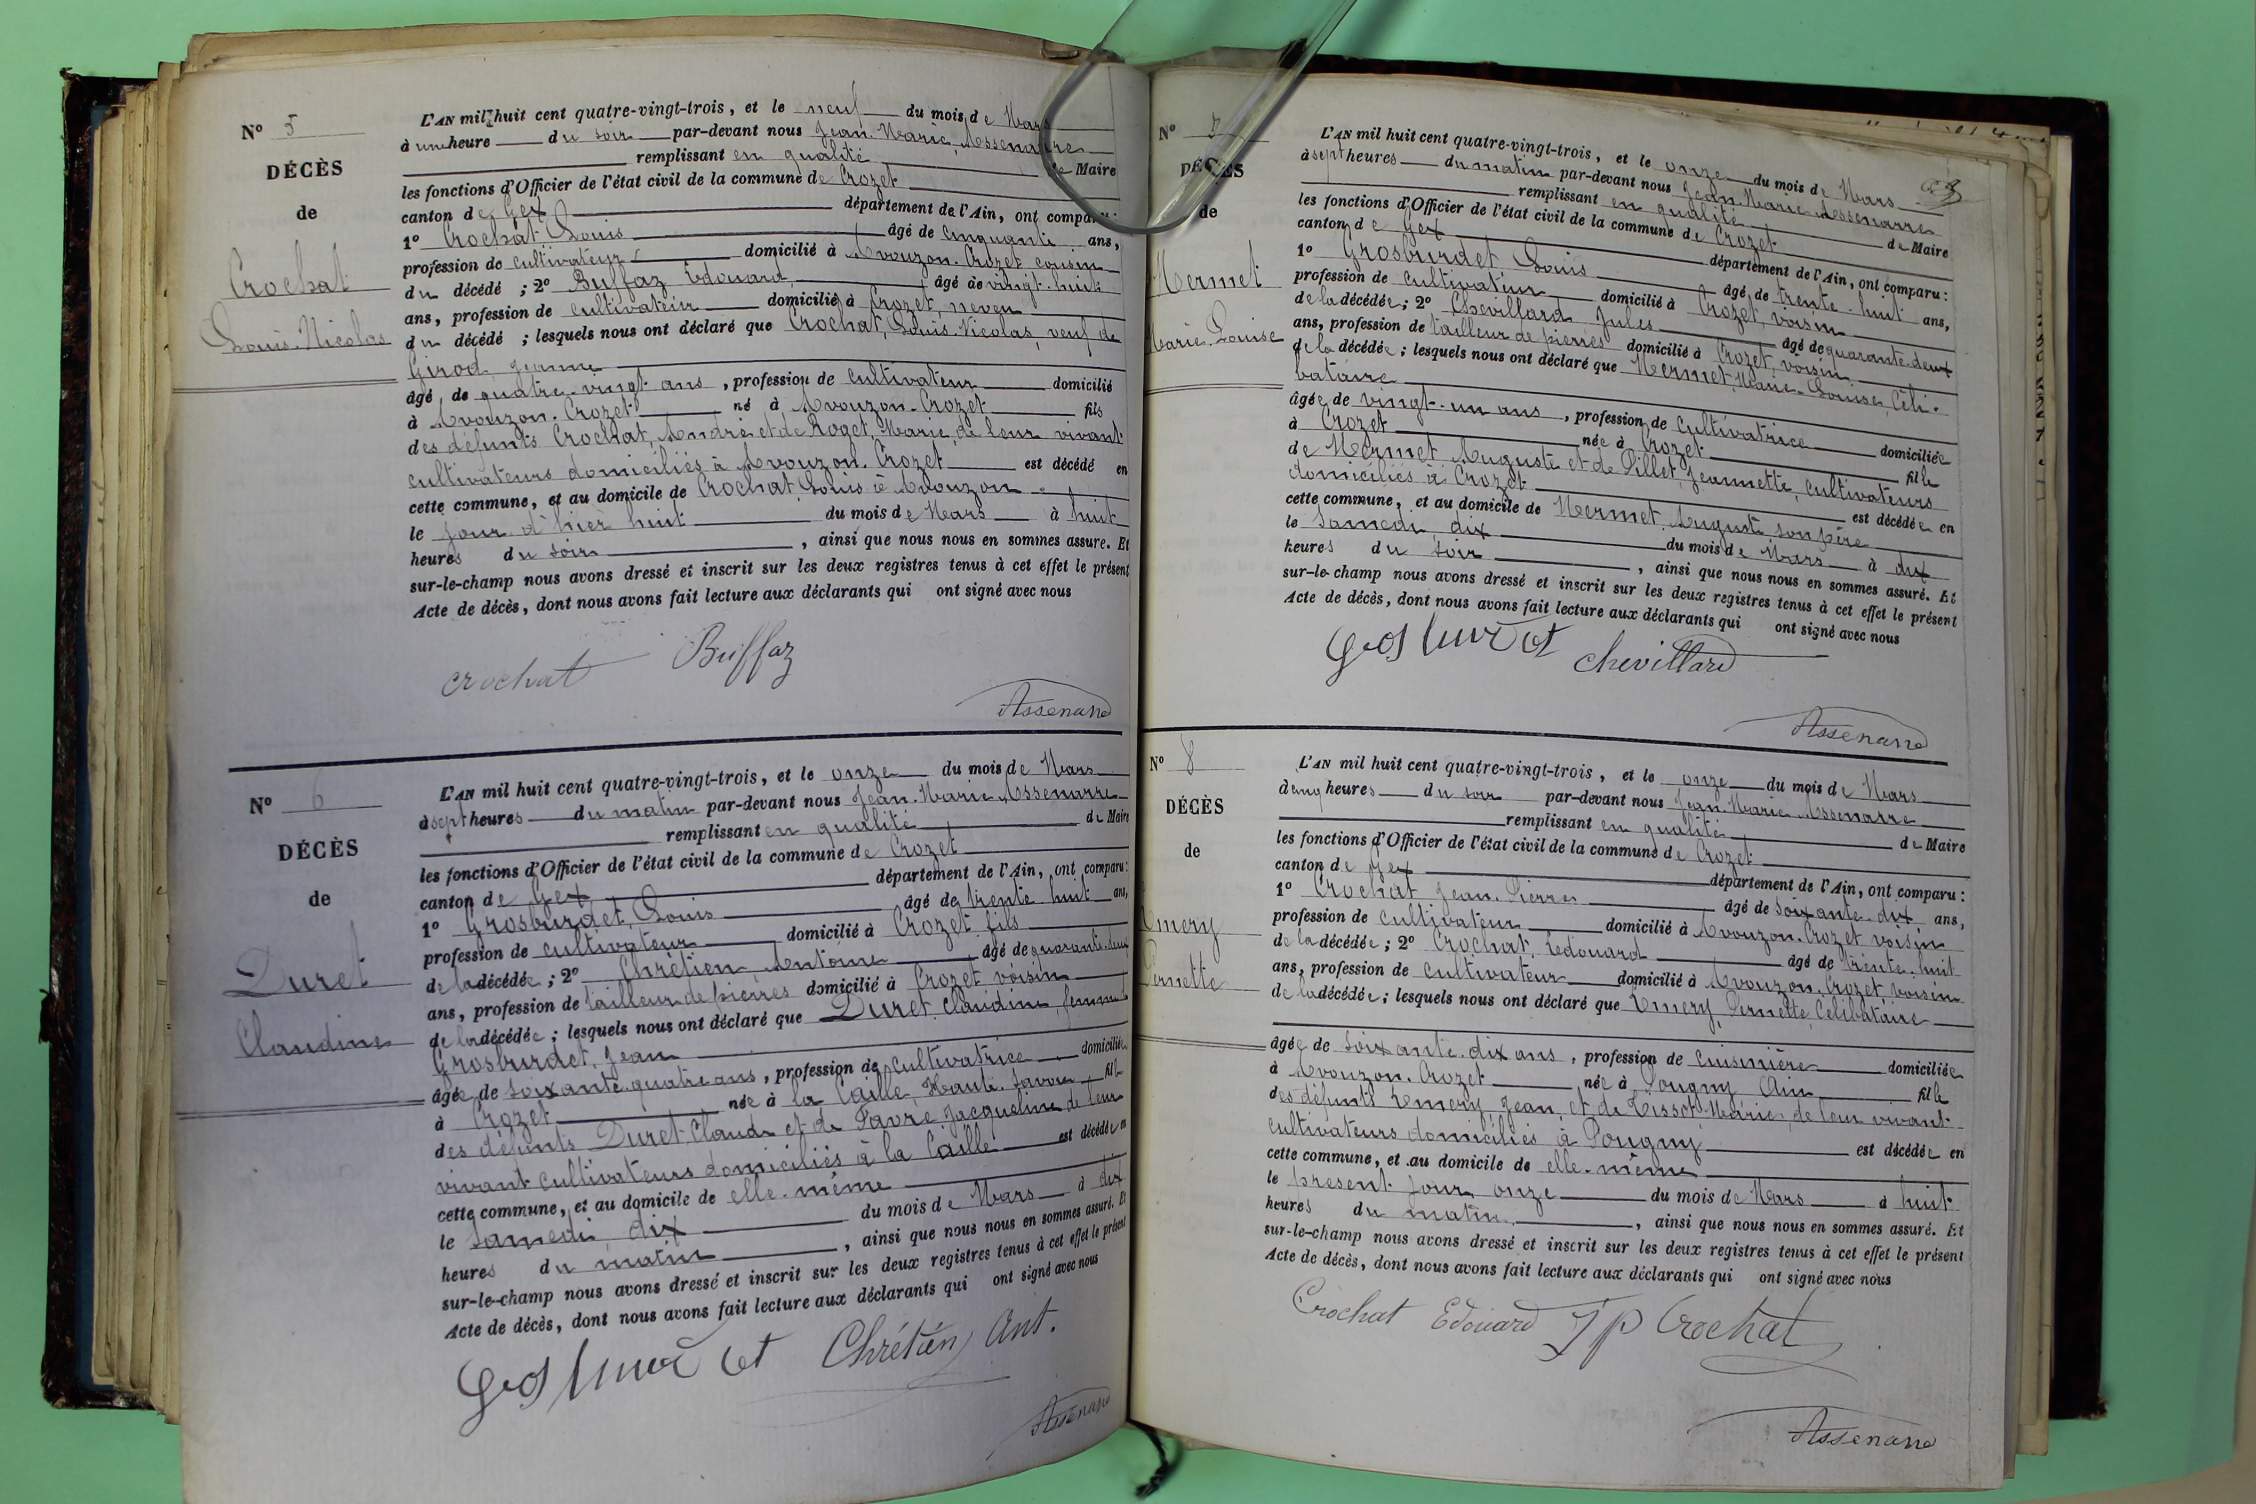 N° 5
DÉCÈS
de
Crochat
Louis-Nicolas
L'AN mil huit cent quatre-vingt-trois, et le neuf du mois de Mars
à une heure du soir par-devant nous Jean-Marie Assenarre
remplissant en qualité de Maire
les fonctions d'Officier de l'état civil de la commune de Crozet
canton de Gex département de l'Ain, ont comparu :
1° Crochat Louis âgé de cinquante ans,
profession de cultivateur domicilié à Avouzon-Crozet cousin
du décédé ; 2° Buffaz Edouard, âgé de vingt-huit
ans, profession de cultivateur domicilié à Crozet, neveu
du décédé ; lesquels nous ont déclaré que Crochat, Louis-Nicolas, veuf de
Girod Jeanne
âgé de quatre-vingt ans, profession de cultivateur domicilié
à Avouzon-Crozet né à Avouzon-Crozet fils
des défunts Crochat, André et de Roget, Marie, de leur vivant
cultivateurs domiciliés à Avouzon-Crozet est décédé en
cette commune, et au domicile de Crochat Louis à Avouzon
le jour d'hier huit du mois de Mars à huit
heures du soir, ainsi que nous nous en sommes assuré. Et
sur-le-champ nous avons dressé et inscrit sur les deux registres tenus à cet effet le présent
Acte de décès, dont nous avons fait lecture aux déclarants qui ont signé avec nous
crochat Buffaz
Assenarre
N° 6
DÉCÈS
de
Duret
Claudine
L'AN mil huit cent quatre-vingt-trois, et le onze du mois de Mars
à sept heures du matin par-devant nous Jean-Marie Assenarre
remplissant en qualité de Maire
les fonctions d'Officier de l'état civil de la commune de Crozet
canton de Gex département de l'Ain, ont comparu :
1° Grosburdet, Louis âgé de trente-huit ans,
profession de cultivateur domicilié à Crozet fils
de la décédée ; 2° Chrétien Antoine âgé de quarante-deux
ans, profession de tailleur de pierres domicilié à Crozet voisin
de la décédée ; lesquels nous ont déclaré que Duret Claudine, femme de
Grosburdet, Jean
âgée de soixante-quatre ans, profession de cultivatrice domiciliée
à Crozet née à la Caille, Haute-Savoie fille
des défunts Duret Claude et de Favre Jacqueline de leur
vivant cultivateurs domiciliés à la Caille est décédée en
cette commune, et au domicile de elle-même
le samedi dix du mois de Mars à dix
heures du matin, ainsi que nous nous en sommes assuré. Et
sur-le-champ nous avons dressé et inscrit sur les deux registres tenus à cet effet le présent
Acte de décès, dont nous avons fait lecture aux déclarants qui ont signé avec nous
Grosburdet Chrétien Ant.
Assenarre
N° 7
DÉCÈS
de
Mermet
Marie-Louise
L'AN mil huit cent quatre-vingt-trois, et le onze du mois de Mars
à sept heures du matin par-devant nous Jean-Marie Assenarre
remplissant en qualité de Maire
les fonctions d'Officier de l'état civil de la commune de Crozet
canton de Gex département de l'Ain, ont comparu :
1° Grosburdet Louis âgé de trente-huit ans,
profession de cultivateur domicilié à Crozet, voisin
de la décédée ; 2° Chevillard Jules âgé de quarante-deux
ans, profession de tailleur de pierres domicilié à Crozet, voisin
de la décédée ; lesquels nous ont déclaré que Mermet, Marie-Louise, Céli-
bataire
âgée de vingt-un ans, profession de cultivatrice domiciliée
à Crozet née à Crozet fille
de Mermet Auguste et de Pillet, Jeannette, cultivateurs
domiciliés à Crozet est décédée en
cette commune, et au domicile de Mermet, Auguste son père
le samedi dix du mois de Mars à dix
heures du soir, ainsi que nous nous en sommes assuré. Et
sur-le-champ nous avons dressé et inscrit sur les deux registres tenus à cet effet le présent
Acte de décès, dont nous avons fait lecture aux déclarants qui ont signé avec nous
Grosburdet chevillard
Assenarre
N° 8
DÉCÈS
de
Emery
Pernette
L'AN mil huit cent quatre-vingt-trois, et le onze du mois de Mars
à cinq heures du soir par-devant nous Jean-Marie Assenarre
remplissant en qualité de Maire
les fonctions d'Officier de l'état civil de la commune de Crozet
canton de Gex département de l'Ain, ont comparu :
1° Crochat Jean-Pierre âgé de soixante-dix ans,
profession de cultivateur domicilié à Avouzon-Crozet voisin
de la décédée ; 2° Crochat, Edouard âgé de trente-huit
ans, profession de cultivateur domicilié à Avouzon-Crozet voisin
de la décédée ; lesquels nous ont déclaré que Emery, Pernette, Célibataire
âgée de soixante-dix ans, profession de cuisinière domiciliée
à Avouzon-Crozet née à Pougny Ain fille
des défunts Emery Jean, et de Tissot Marie, de leur vivant
cultivateurs domiciliés à Pougny est décédée en
cette commune, et au domicile de elle-même
le présent jour onze du mois de Mars à huit
heures du matin, ainsi que nous nous en sommes assuré. Et
sur-le-champ nous avons dressé et inscrit sur les deux registres tenus à cet effet le présent
Acte de décès, dont nous avons fait lecture aux déclarants qui ont signé avec nous
Crochat Edouard J P Crochat
Assenarre